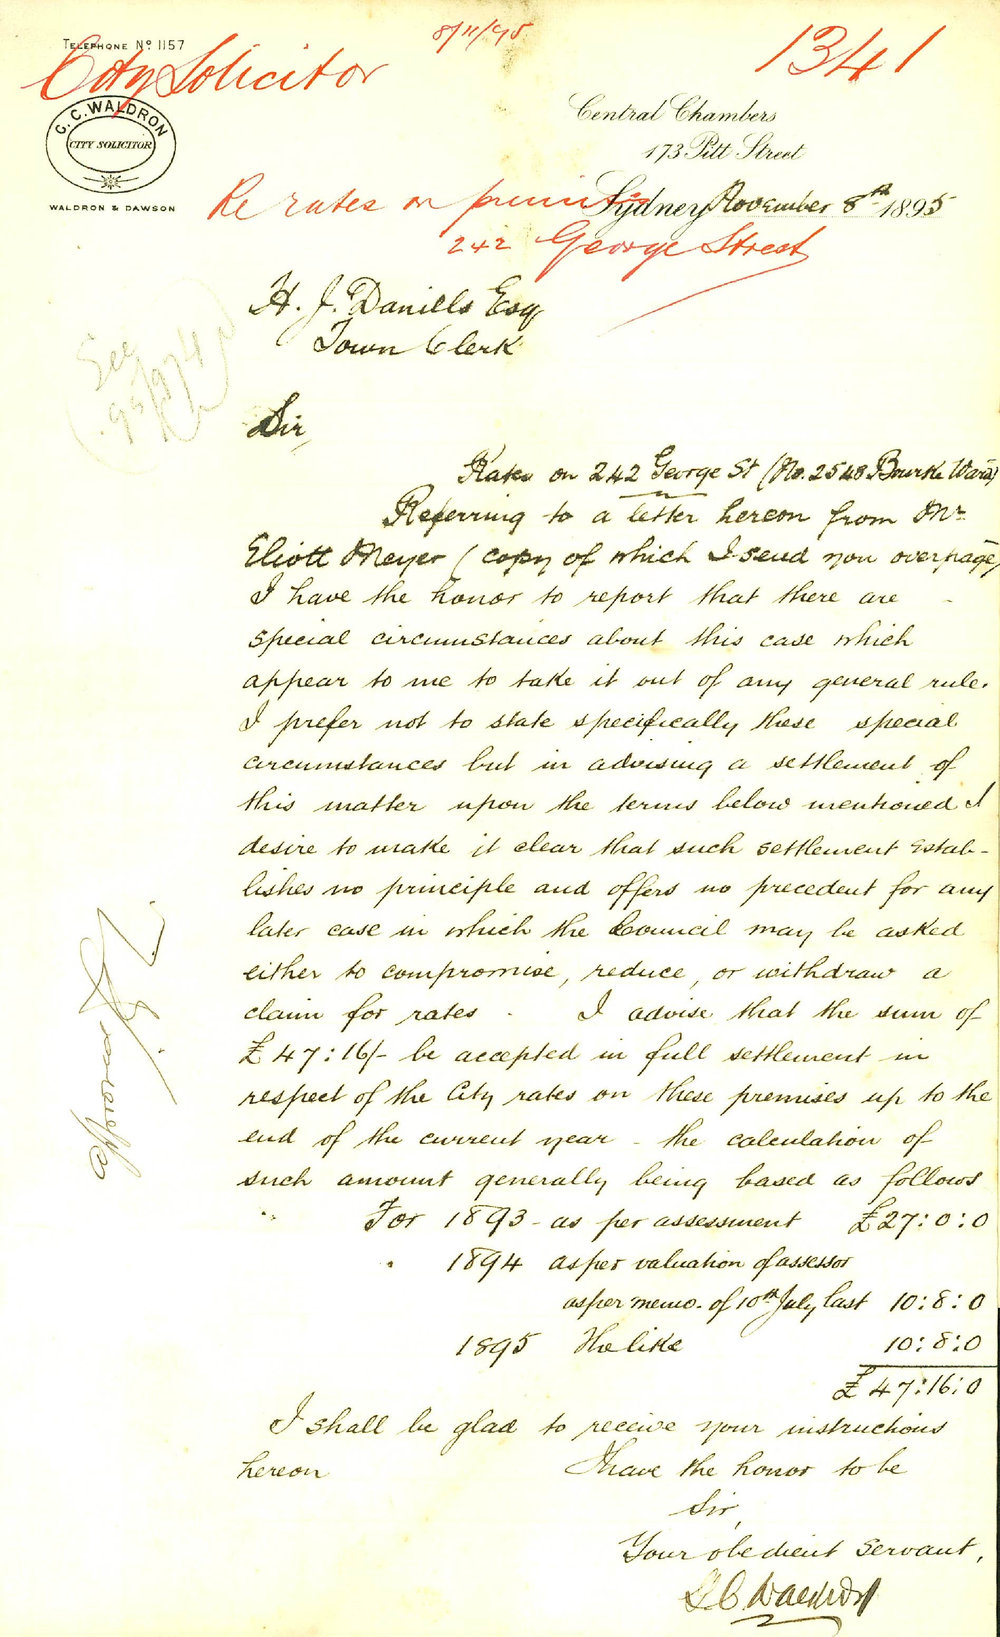 TELEPHONE Nº 1157
8/11/95
1341
City Solicitor
C. C. WALDRON
CITY SOLICITOR
WALDRON & DAWSON
Central Chambers
173 Pitt Street
Sydney November 8th 1895
Re rates on premises
242 George Street
H. J. Daniells Esq
Town Clerk
See
Sir,
Rates on 242 George St (No. 2548 Bourke Ward)
Referring to a letter hereon from Mr
Eliott Meyer (copy of which I send you overpage)
I have the honor to report that there are
special circumstances about this case which
appear to me to take it out of any general rule.
I prefer not to state specifically these special
circumstances but in advising a settlement of
this matter upon the terms below mentioned I
desire to make it clear that such settlement estab-
lishes no principle and offers no precedent for any
later case in which the Council may be asked
either to compromise, reduce, or withdraw a
claim for rates - I advise that the sum of
£47:16/- be accepted in full settlement in
respect of the City rates on these premises up to the
end of the current year - the calculation of
such amount generally being based as follows
For 1893 - as per assessment £27:0:0
" 1894 as per valuation of assessor
as per memo. of 10th July last 10:8:0
1895 The like 10:8:0
£47:16:0
I shall be glad to receive your instructions
hereon I have the honor to be
Sir,
Your obedient servant,
C C Waldron